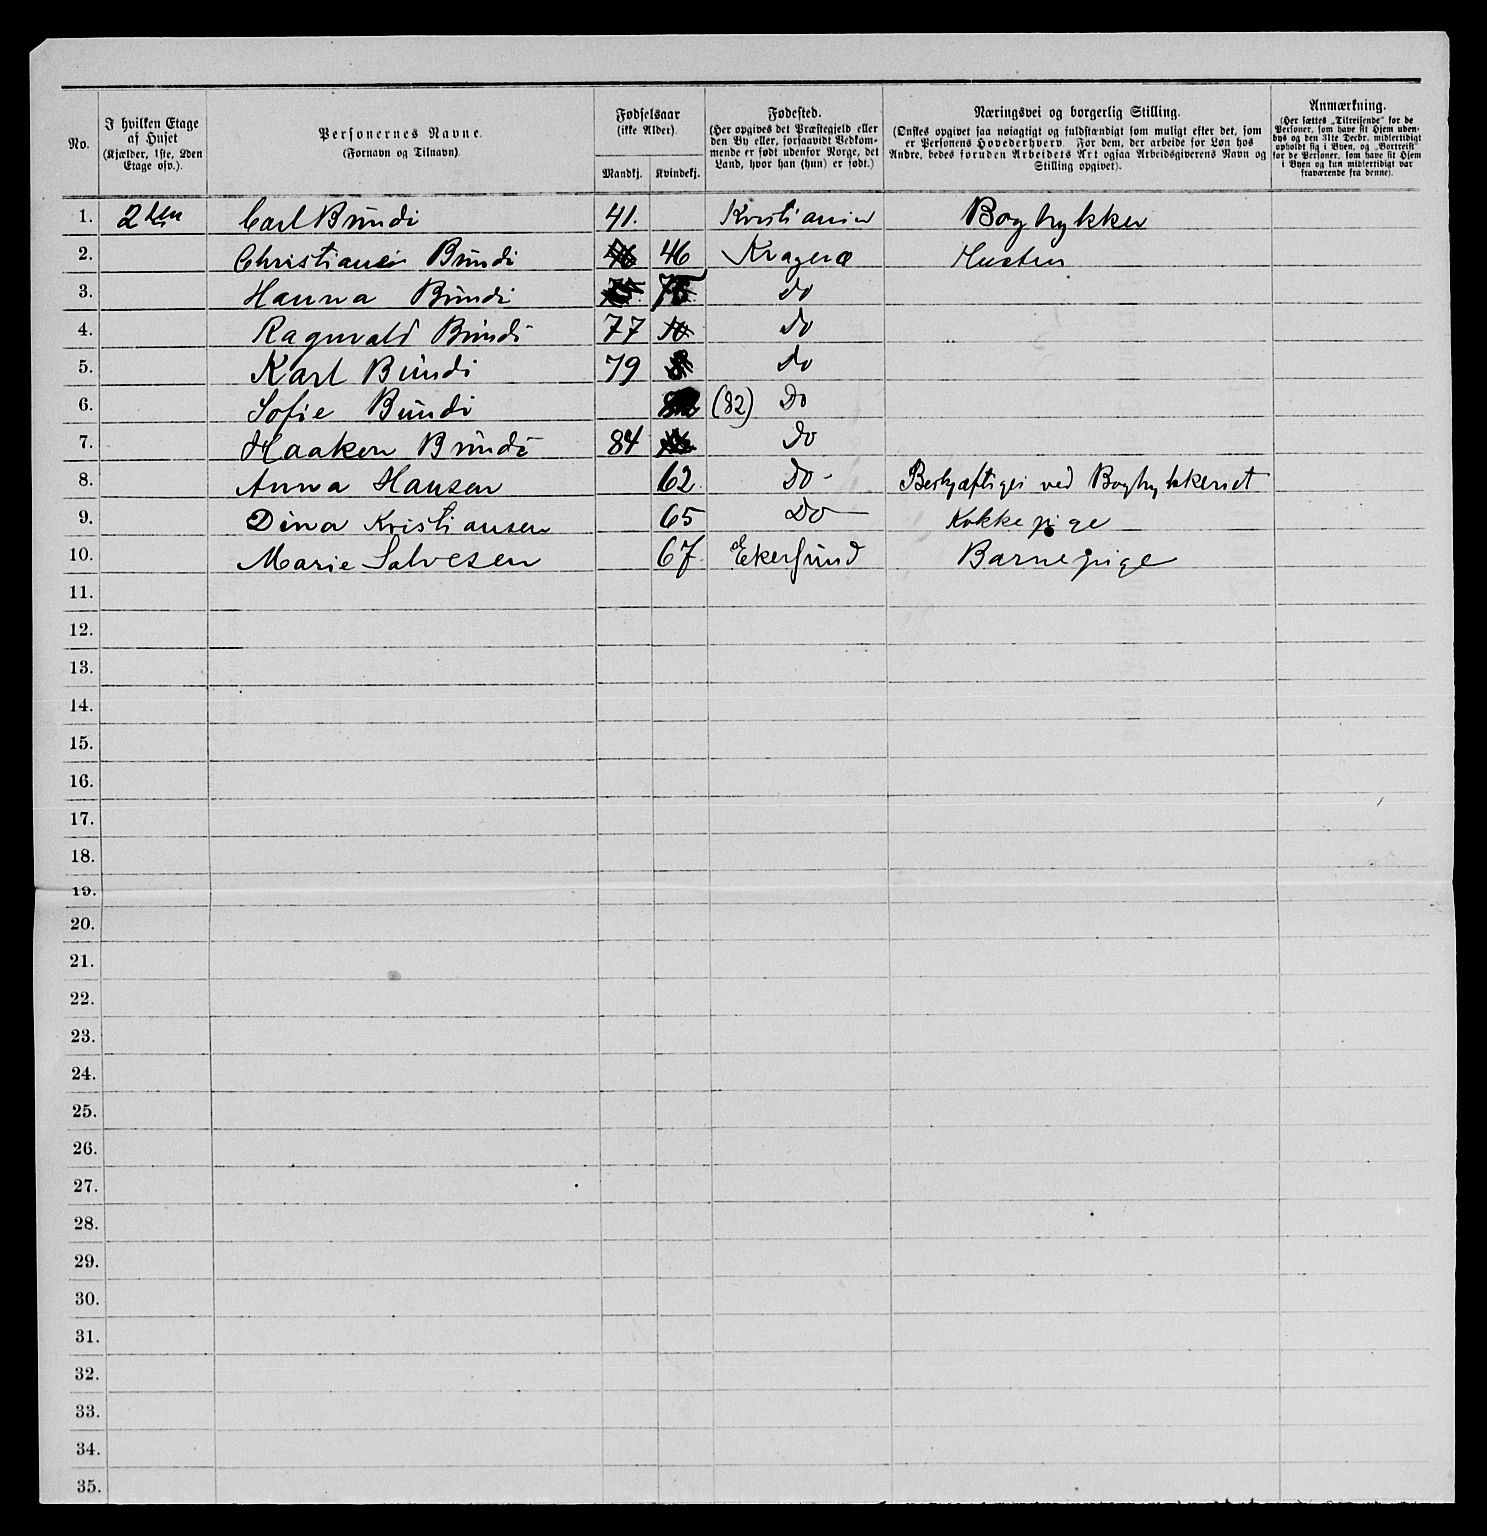 No.
I hvilken Etage
af Huset
(Kjælder, 1ste, 2den
Etage osv.).
Personernes Navne.
(Fornavn og Tilnavn).
Fødselsaar
(ikke Alder).
Mandkj. Kvindekj.
Fødested.
(Her opgives det Præstegjeld eller
den By eller, forsaavidt Vedkom-
mende er født udenfor Norge, det
Land, hvor han (hun) er født.)
Næringsvei og borgerlig Stilling.
(Ønskes opgivet saa nøiagtigt og fuldstændigt som muligt efter det, som
er Personens Hovederhverv. For dem, der arbeide for Løn hos
Andre, bedes foruden Arbeidets Art ogsaa Arbeidsgiverens Navn og
Stilling opgivet).
Anmærkning.
(Her sættes "Tilreisende" for de
Personer, som have sit Hjem uden-
bys og den 31te Decbr. midlertidigt
opholdt sig i Byen, og "Bortreist"
for de Personer, som have sit Hjem
i Byen og kun midlertidigt var
fraværende fra denne).
1. 2den Carl Bündi 41. Kristiania Bogtrykker
2. Christiane Bündi 46 Kragerø Hustru
3. Hanna Bündi 75 Do
4. Ragnvald Bündi 77 Do
5. Karl Bündi 79 Do
6. Sofie Bündi (82) Do
7. Haakon Bündi 84 Do
8. Anna Hansen 62. Do - Beskjæftiges ved Bogtrykkeriet
9. Dina Kristiansen 65 Do Kokkepige
10. Marie Salvesen 67. Ekersund Barnepige
11.
12.
13.
14.
15.
16.
17.
18.
19.
20.
21.
22.
23.
24.
25.
26.
27.
28.
29.
30.
31.
32.
33.
34.
35.